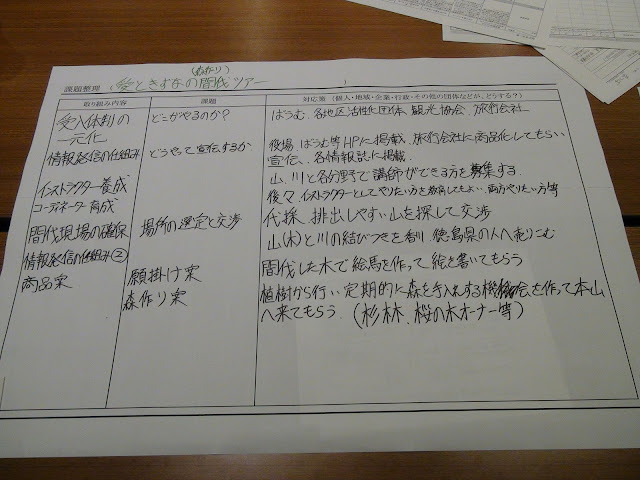 (森作り)
課題整理 (愛ときずなの間伐ツアー )
取り組み内容 課題 対応策 (個人・地域・企業・行政・その他の団体などが、どうする?)
受入体制の 一元化 どこがやるのか? ばうむ、各地区活性化団体、観光協会、旅行会社
情報発信の仕組み どうやって宣伝するか 役場、ばうむ等HPに掲載、旅行会社に商品化してもらい
宣伝、各情報誌に掲載。
インストラクター養成 山、川と各分野で講師ができる方を募集する。
コーディネーター育成 後々、インストラクターとしてやりたい方を教育してもよい、両方やりたい方等
間伐現場の確保 場所の選定と交渉 代採、排出しやすい山を探して交渉
情報発信の仕組み② 山(木)と川の結びつきを 徳島県の人へ売りこむ
商品案 願掛け案 間伐した木で絵馬を作って絵を書いてもらう
森作り案 植樹から行い定期的に森を手入れする機会を作って本山
へ来てもらう。(杉林、桜の木オーナー等)